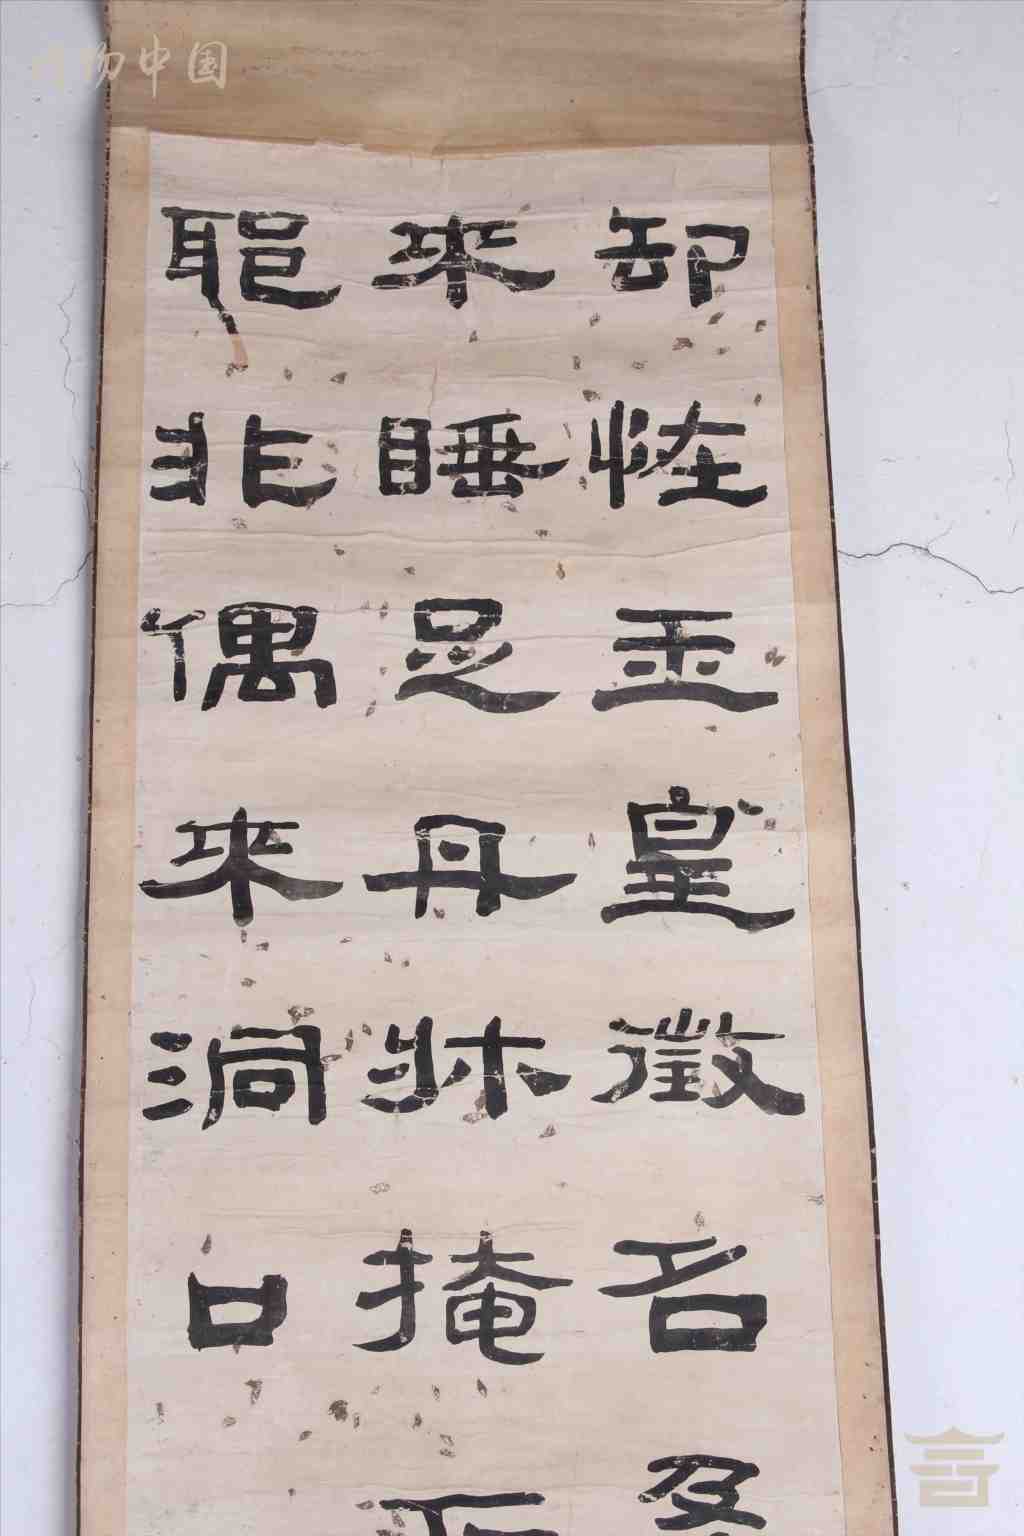 博物中国
却恠玉皇徵名
来睡足丹牀掩
耶非偶来洞口